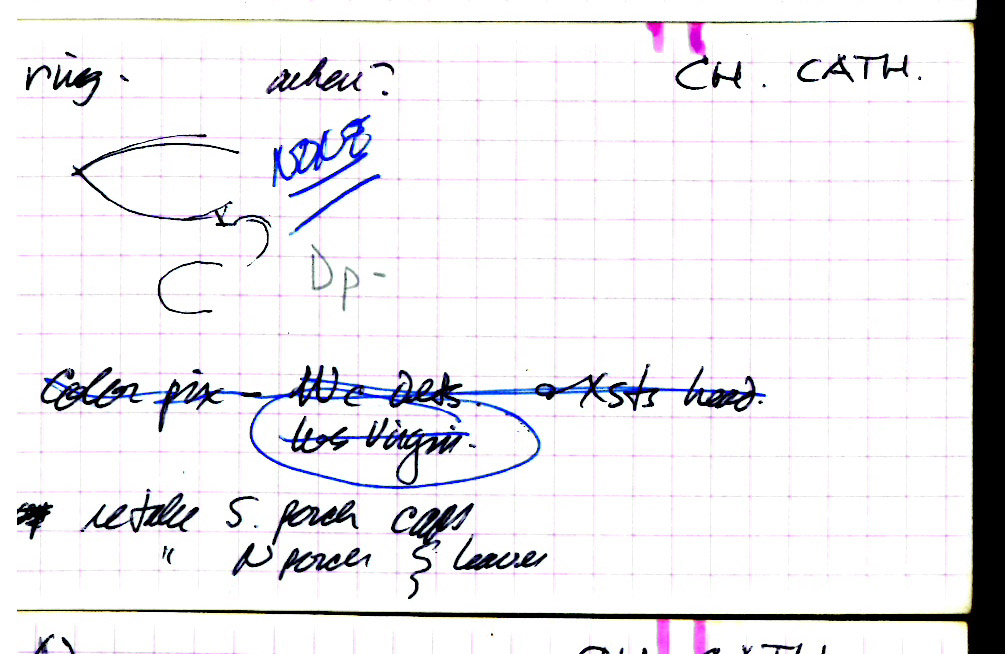 ring. when? CH. CATH.
NONE
Dp-
Color pix - Wc dets. Xsts head.
Virgin.
retake S. porch caps
" N porch } leaves
CATH